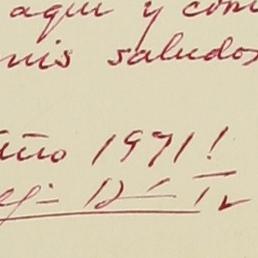 aquí y com
mis saludos
año 1971!